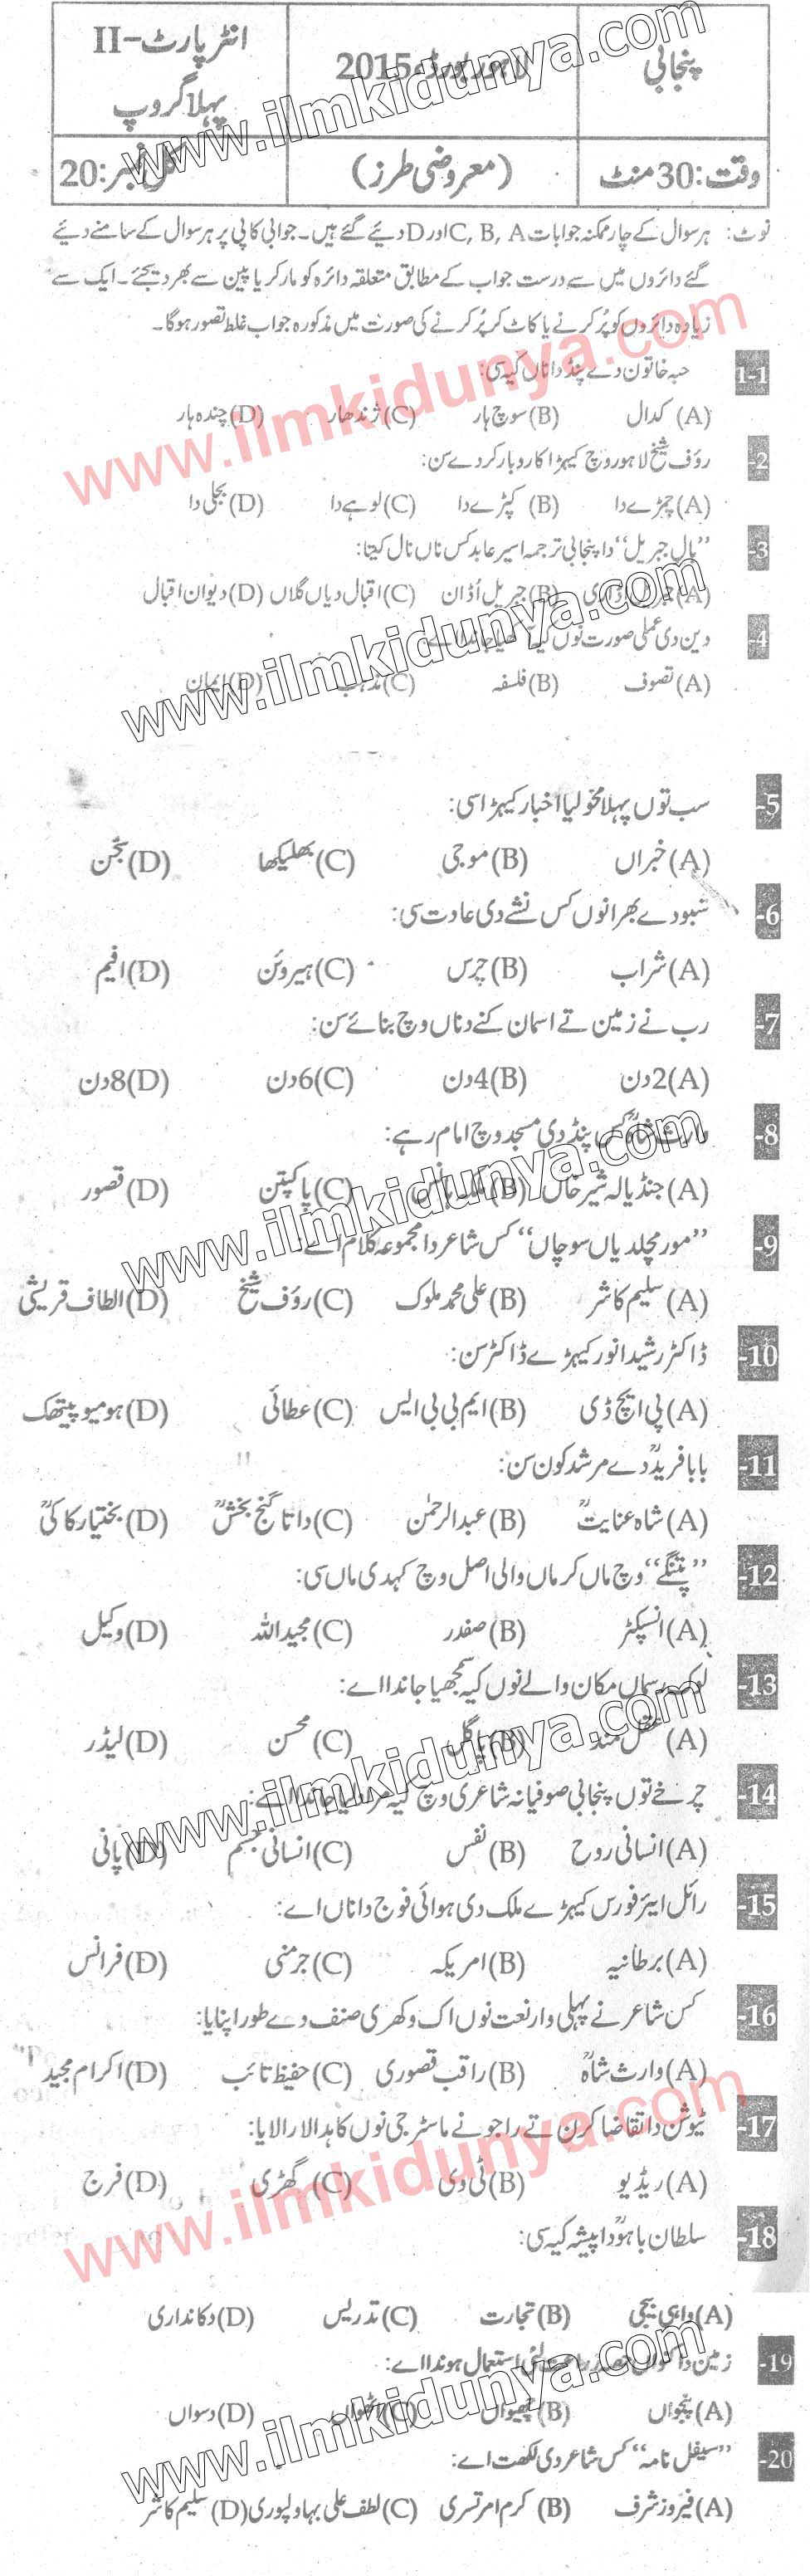 پنجابی
لاہور بورڈ 2015ء
انٹر پارٹ-II
پہلا گروپ
وقت: 30 منٹ
(معروضی طرز)
کل نمبر: 20
نوٹ: ہر سوال کے چار ممکنہ جوابات C, B, A اور D دیئے گئے ہیں۔ جوابی کاپی پر ہر سوال کے سامنے دیئے
گئے دائروں میں سے درست جواب کے مطابق متعلقہ دائرہ کو مارکر یا پین سے بھر دیجئے۔ ایک سے
زیادہ دائروں کو پُر کرنے یا کاٹ کر پُر کرنے کی صورت میں مذکورہ جواب غلط تصور ہو گا۔
1-1 حبہ خاتون دے پنڈ دا ناں کیہ سی:
(A) کدال (B) سوچ ہار (C) ژندھار (D) چندہ ہار
-2 رؤف شیخ لاہور وچ کیہڑا کاروبار کردے سن:
(A) چمڑے دا (B) کپڑے دا (C) لوہے دا (D) بجلی دا
-3 ”بال جبریل“ دا پنجابی ترجمہ اسیر عابد کس ناں نال کیتا:
(A) جبریل اڈاری (B) جبریل اُڈان (C) اقبال دیاں گلاں (D) دیوان اقبال
-4 دین دی عملی صورت نوں کیہ آکھیا جاندا اے:
(A) تصوف (B) فلسفہ (C) مذہب (D) ایمان
-5 سب توں پہلا مخولیا اخبار کیہڑا سی:
(A) خبراں (B) موجی (C) بھلیکھا (D) سجن
-6 شبو دے بھرا نوں کس نشے دی عادت سی:
(A) شراب (B) چرس (C) ہیروئن (D) افیم
-7 رب نے زمین تے اسمان کنے دناں وچ بنائے سن:
(A) 2 دن (B) 4 دن (C) 6 دن (D) 8 دن
-8 وارث شاہؒ کس پنڈ دی مسجد وچ امام رہے:
(A) جنڈیالہ شیر خاں (B) ملکہ ہانس (C) پاکپتن (D) قصور
-9 ”مور مچلدیاں سوچاں“ کس شاعر دا مجموعہ کلام اے:
(A) سلیم کاشر (B) علی محمد ملوک (C) رؤف شیخ (D) الطاف قریشی
-10 ڈاکٹر رشید انور کیہڑے ڈاکٹر سن:
(A) پی ایچ ڈی (B) ایم بی بی ایس (C) عطائی (D) ہومیو پیتھک
-11 بابا فریدؒ دے مرشد کون سن:
(A) شاہ عنایتؒ (B) عبدالرحمٰن (C) داتا گنج بخشؒ (D) بختیار کاکیؒ
-12 ”پتنگے“ وچ ماں کرماں والی اصل وچ کہدی ماں سی:
(A) انسپکٹر (B) صفدر (C) مجید اللہ (D) وکیل
-13 لوک رسماں مکان والے نوں کیہ سمجھیا جاندا اے:
(A) عقل مند (B) پاگل (C) محسن (D) لیڈر
-14 چرخے توں پنجابی صوفیانہ شاعری وچ کیہ مراد لیا جاندا اے:
(A) انسانی روح (B) نفس (C) انسانی جسم (D) پانی
-15 رائل ایئر فورس کیہڑے ملک دی ہوائی فوج دا ناں اے:
(A) برطانیہ (B) امریکہ (C) جرمنی (D) فرانس
-16 کس شاعر نے پہلی وار نعت نوں اک وکھری صنف دے طور اپنایا:
(A) وارث شاہؒ (B) راقب قصوری (C) حفیظ تائب (D) اکرام مجید
-17 ٹیوشن دا تقاضا کرن تے راجو نے ماسٹر جی نوں کاہدا لارا لایا:
(A) ریڈیو (B) ٹی وی (C) گھڑی (D) فرج
-18 سلطان باہوؒ دا پیشہ کیہ سی:
(A) واہی بیجی (B) تجارت (C) تدریس (D) دکانداری
-19 زمین دا کنواں حصہ زراعت لئی استعمال ہوندا اے:
(A) پنجواں (B) چھیواں (C) اٹھواں (D) دسواں
-20 ”سیفل نامہ“ کس شاعر دی لکھت اے:
(A) فیروز شرف (B) کرم امرتسری (C) لطف علی بہاولپوری (D) سلیم کاشر
www.ilmkidunya.com
www.ilmkidunya.com
www.ilmkidunya.com
www.ilmkidunya.com
www.ilmkidunya.com
www.ilmkidunya.com
www.ilmkidunya.com